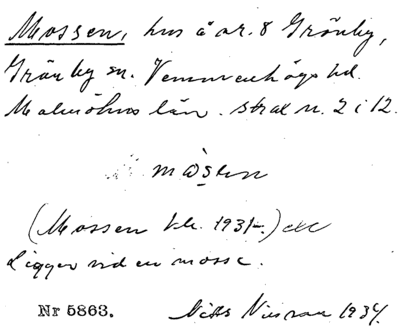 Mossen, hus å nr. 8 Grönby,
Grönby sn. Vemmenhögs hd.
Malmöhus län. strax n. 2 i 12.
måsen
(Mossen kk. 1931-.)
Ligger vid en mosse.
Nr 5863. Nils 1934.